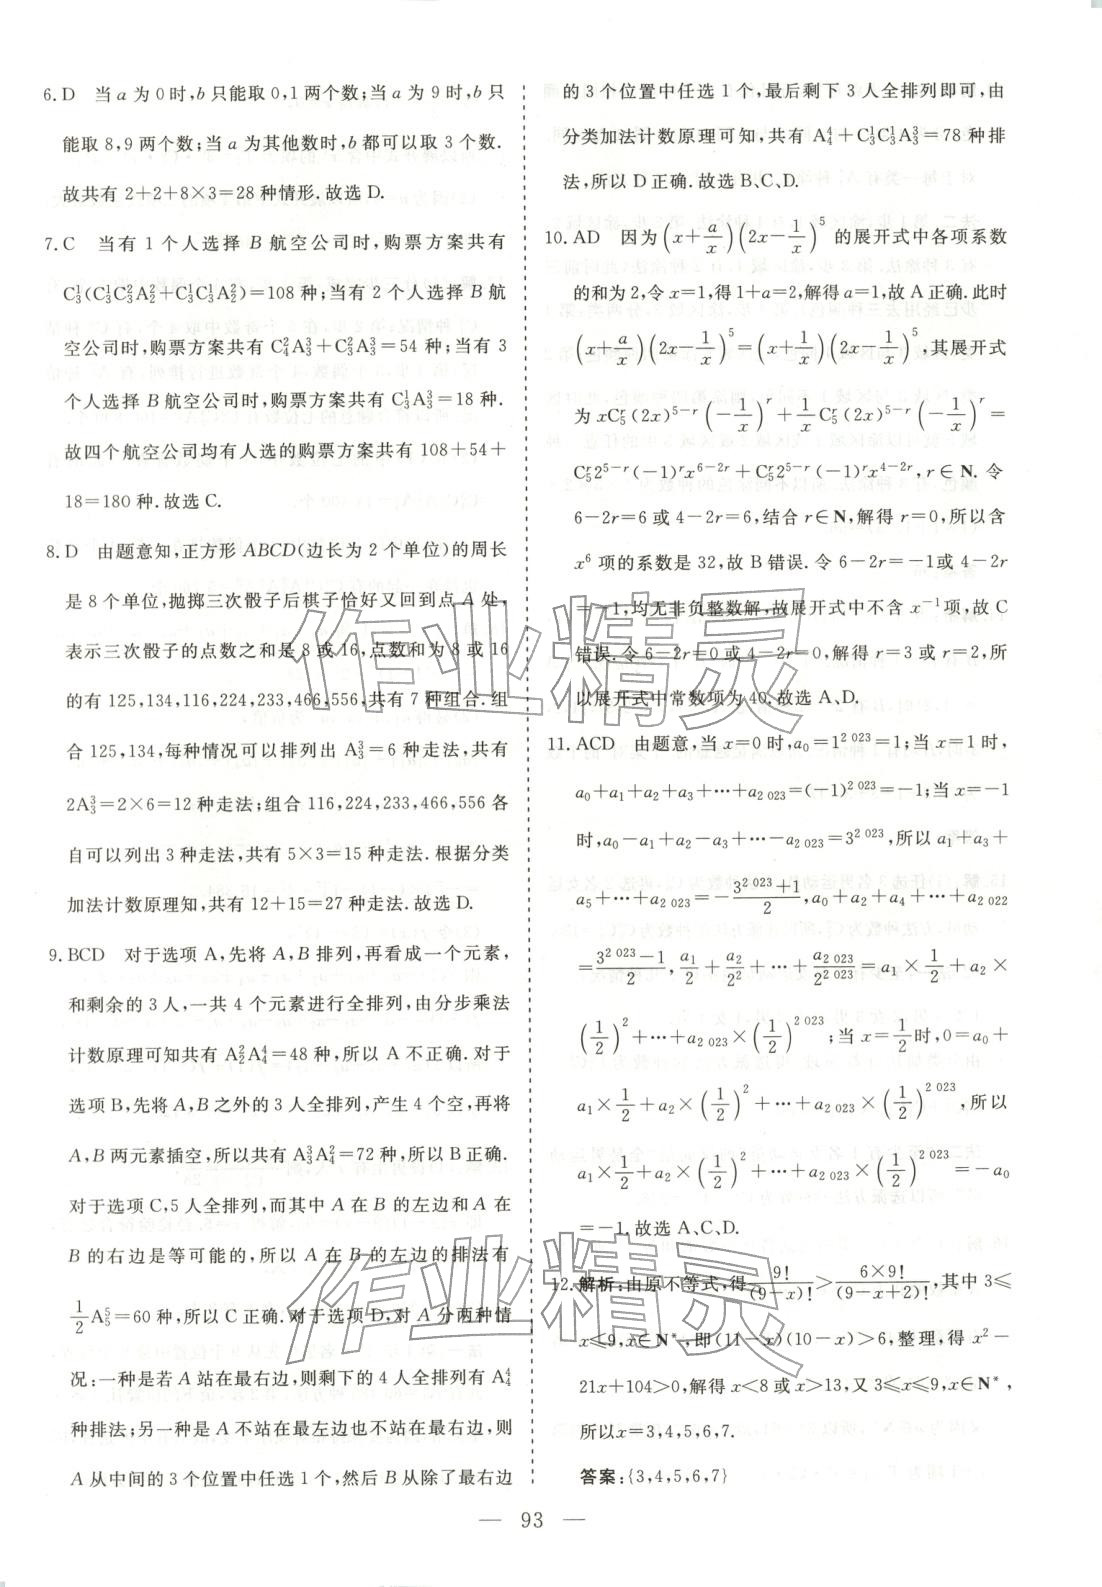 6. D　当 a 为 0 时, b 只能取 0,1 两个数;当 a 为 9 时, b 只
能取 8,9 两个数;当 a 为其他数时, b 都可以取 3 个数.
故共有 2+2+8×3=28 种情形. 故选 D.
7. C　当有 1 个人选择 B 航空公司时,购票方案共有
C¹₃(C¹₃C²₃A²₂+C¹₃C¹₃A²₂)=108 种;当有 2 个人选择 B 航
空公司时,购票方案共有 C²₄A³₃+C²₃A³₃=54 种;当有 3
个人选择 B 航空公司时,购票方案共有 C¹₃A³₃=18 种.
故四个航空公司均有人选的购票方案共有 108+54+
18=180 种. 故选 C.
8. D　由题意知,正方形 ABCD(边长为 2 个单位)的周长
是 8 个单位,抛掷三次骰子后棋子恰好又回到点 A 处,
表示三次骰子的点数之和是 8 或 16,点数和为 8 或 16
的有 125,134,116,224,233,466,556,共有 7 种组合. 组
合 125,134,每种情况可以排列出 A³₃=6 种走法,共有
2A³₃=2×6=12 种走法;组合 116,224,233,466,556 各
自可以列出 3 种走法,共有 5×3=15 种走法. 根据分类
加法计数原理知,共有 12+15=27 种走法. 故选 D.
9. BCD　对于选项 A,先将 A,B 排列,再看成一个元素,
和剩余的 3 人,一共 4 个元素进行全排列,由分步乘法
计数原理可知共有 A²₂A⁴₄=48 种,所以 A 不正确. 对于
选项 B,先将 A,B 之外的 3 人全排列,产生 4 个空,再将
A,B 两元素插空,所以共有 A³₃A²₄=72 种,所以 B 正确.
对于选项 C,5 人全排列,而其中 A 在 B 的左边和 A 在
B 的右边是等可能的,所以 A 在 B 的左边的排法有
1/2 A⁵₅=60 种,所以 C 正确. 对于选项 D,对 A 分两种情
况:一种是若 A 站在最右边,则剩下的 4 人全排列有 A⁴₄
种排法;另一种是 A 不站在最左边也不站在最右边,则
A 从中间的 3 个位置中任选 1 个,然后 B 从除了最右边
的 3 个位置中任选 1 个,最后剩下 3 人全排列即可,由
分类加法计数原理可知,共有 A⁴₄+C¹₃C¹₃A³₃=78 种排
法,所以 D 正确. 故选 B、C、D.
10. AD　因为(x+a/x)(2x−1/x)⁵ 的展开式中各项系数
的和为 2,令 x=1,得 1+a=2,解得 a=1,故 A 正确. 此时
(x+a/x)(2x−1/x)⁵=(x+1/x)(2x−1/x)⁵,其展开式
为 xCʳ₅(2x)⁵⁻ʳ(−1/x)ʳ+1/x Cʳ₅(2x)⁵⁻ʳ(−1/x)ʳ=
Cʳ₅2⁵⁻ʳ(−1)ʳx⁶⁻²ʳ+Cʳ₅2⁵⁻ʳ(−1)ʳx⁴⁻²ʳ, r∈N. 令
6−2r=6 或 4−2r=6,结合 r∈N,解得 r=0,所以含
x⁶ 项的系数是 32,故 B 错误. 令 6−2r=−1 或 4−2r
=−1,均无非负整数解,故展开式中不含 x⁻¹ 项,故 C
错误. 令 6−2r=0 或 4−2r=0,解得 r=3 或 r=2,所
以展开式中常数项为 40. 故选 A、D.
11. ACD　由题意,当 x=0 时, a₀=1^{2 023}=1;当 x=1 时,
a₀+a₁+a₂+a₃+⋯+a_{2 023}=(−1)^{2 023}=−1;当 x=−1
时, a₀−a₁+a₂−a₃+⋯−a_{2 023}=3^{2 023},所以 a₁+a₃+
a₅+⋯+a_{2 023}=−(3^{2 023}+1)/2, a₀+a₂+a₄+⋯+a_{2 022}
=(3^{2 023}−1)/2, a₁/2+a₂/2²+⋯+a_{2 023}/2^{2 023}=a₁×1/2+a₂×
(1/2)²+⋯+a_{2 023}×(1/2)^{2 023};当 x=1/2 时, 0=a₀+
a₁×1/2+a₂×(1/2)²+⋯+a_{2 023}×(1/2)^{2 023},所以
a₁×1/2+a₂×(1/2)²+⋯+a_{2 023}×(1/2)^{2 023}=−a₀
=−1. 故选 A、C、D.
12. 解析:由原不等式,得 9!/(9−x)!>6×9!/(9−x+2)!,其中 3≤
x≤9, x∈N*,即(11−x)(10−x)>6,整理,得 x²−
21x+104>0,解得 x<8 或 x>13,又 3≤x≤9, x∈N*,
所以 x=3,4,5,6,7.
答案:{3,4,5,6,7}
— 93 —
作业精灵
作业精灵